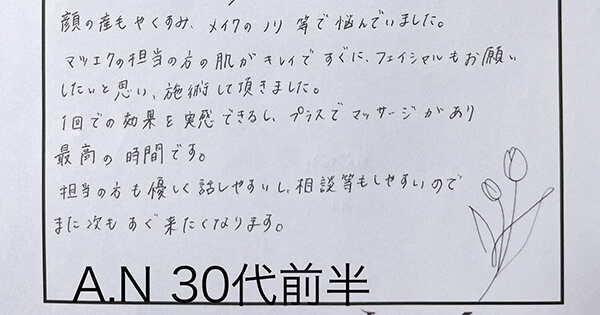 顔の産毛やくすみ、メイクのノリ等で悩んでいました。
マツエクの担当の方の肌がキレイですぐに、フェイシャルもお願い
したいと思い、施術して頂きました。
1回での効果を実感できるし、プラスでマッサージがあり
最高の時間です。
担当の方も優しく話しやすいし、相談等もしやすいので
また次もすぐ来たくなります。
A.N 30代前半